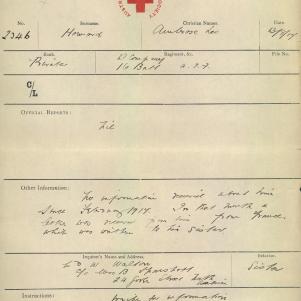 SOCIETY
No.
Surname:
Christian Names:
Date
2346
Howard
Ambrose Leo
Rank.
Regiment, &c.
File No.
Private
D Company
16 Batt A.I.F.
C/L
OFFICIAL REPORTS:
Nil
Other Information:
No information received about him
since February 1917. In that month a
letter was received from him from France
which was written to his sister
Inquirer's Name and Address,
Relation.
M. Waldon
Sister
c/o Mrs B
Instructions:
information